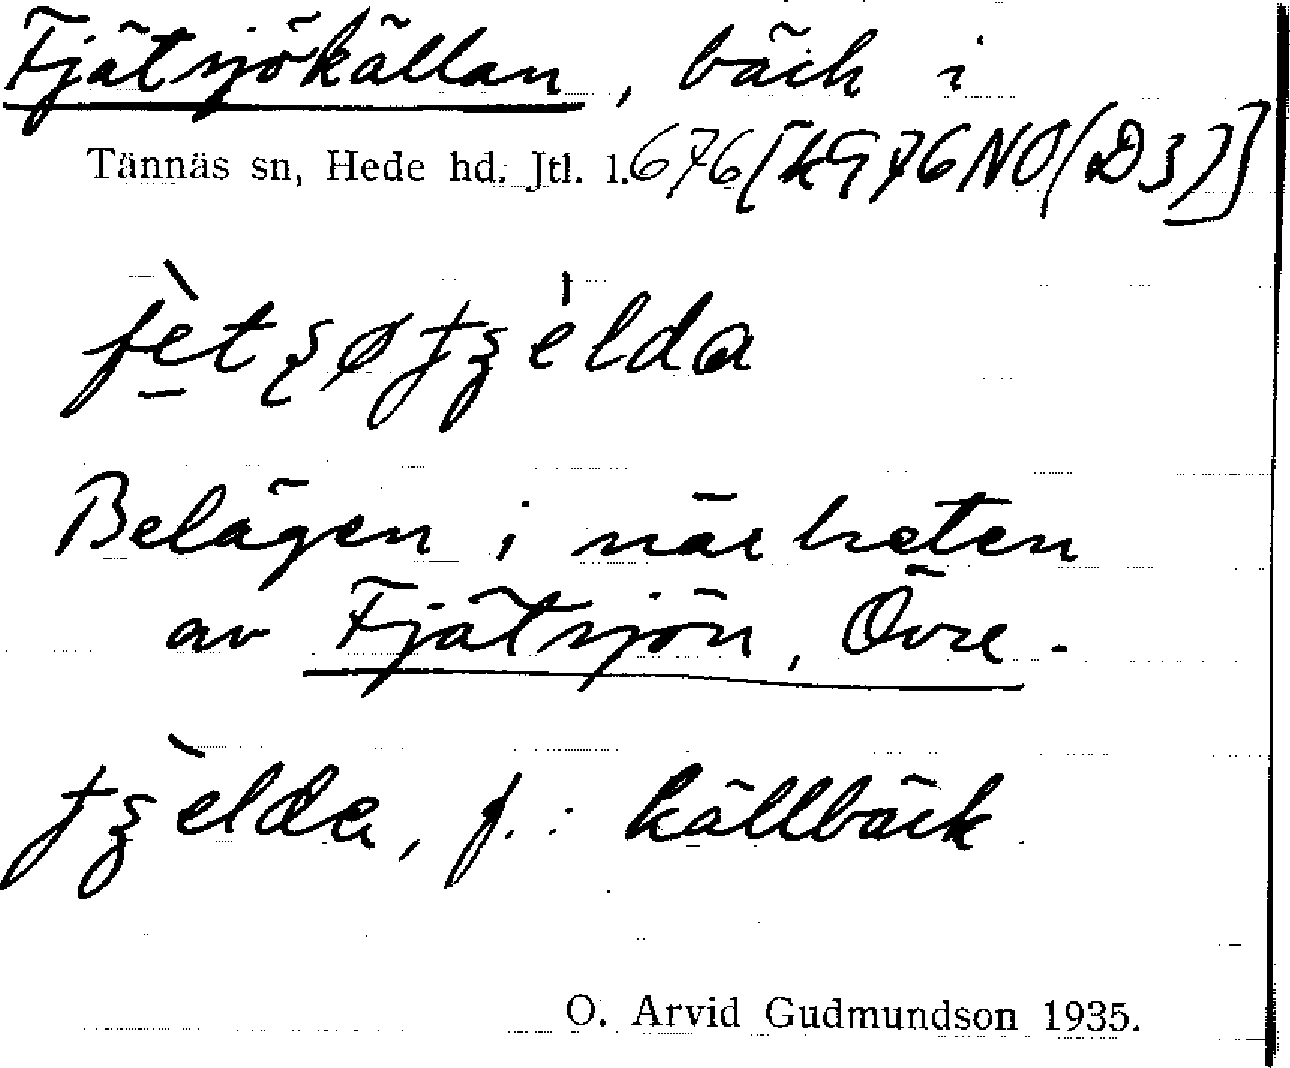 Fjätsjökällan, bäck i
Tännäs sn, Hede hd. Jtl. l. 676 [kG76NO(D3)]
Belägen i närheten
av Fjätsjön, Övre.
f. : källbäck.
O. Arvid Gudmundson 1935.